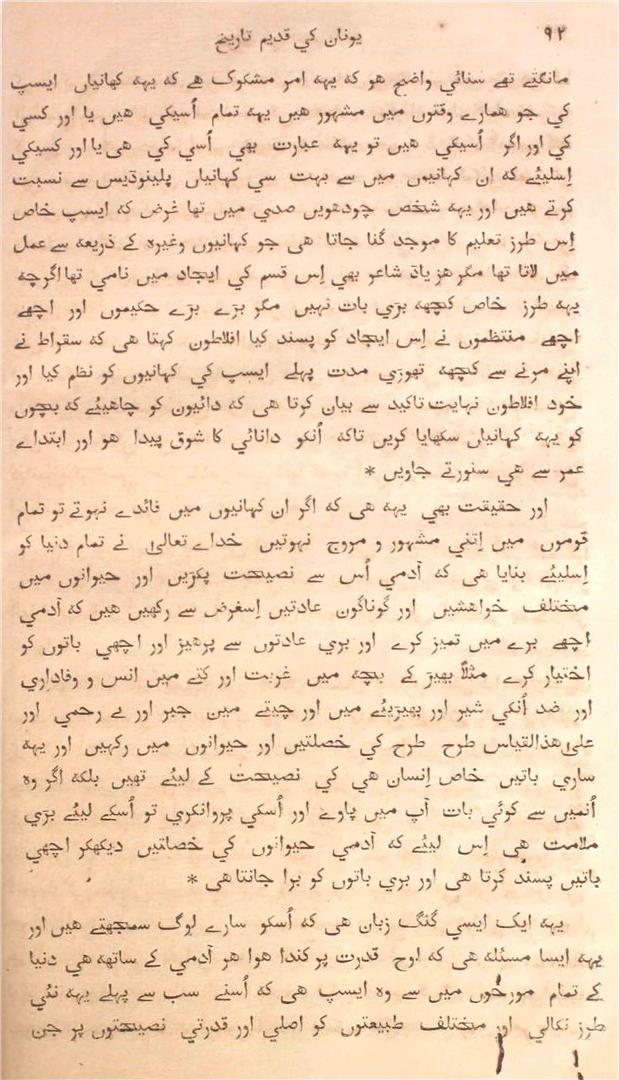 ۹۲
یونان کي قدیم تاریخ
مانگتے تھے سنائي واضح هو که یهه امر مشکوک هے که یهه کهانیاں ایسپ
کي جو همارے وقتوں میں مشہور هیں یهه تمام اُسیکي هیں یا اور کسي
کي اور اگر اُسیکي هیں تو یهه عبارت بھي اُسي کي هی یا اور کسیکي
اِسلیئے که ان کهانیوں میں سے بہت سي کهانیاں پلینوڈیس سے نسبت
کرتے هیں اور یهه شخص چودھویں صدي میں تھا غرض که ایسپ خاص
اِس طرز تعلیم کا موجد گنا جاتا هی جو کهانیوں وغیرہ کے ذریعه سے عمل
میں لاتا تھا مگر هزیاڈ شاعر بھي اِس قسم کي ایجاد میں نامي تھا اگرچه
یهه طرز خاص کچھه بڑي بات نہیں مگر بڑے بڑے حکیموں اور اچھے
اچھے منتظموں نے اِس ایجاد کو پسند کیا افلاطون کہتا هی که سقراط نے
اپنے مرنے سے کچھه تھوڑي مدت پہلے ایسپ کي کهانیوں کو نظم کیا اور
خود افلاطون نہایت تاکید سے بیان کرتا هی که دائیوں کو چاهیئے که بچوں
کو یهه کهانیاں سکھایا کریں تاکه اُنکو دانائي کا شوق پیدا هو اور ابتداے
عمر سے هي سنورتے جاویں *
اور حقیقت بھي یهه هی که اگر ان کهانیوں میں فائدے نہوتے تو تمام
قوموں میں اِتني مشہور و مروج نہوتیں خداے تعالیٰ نے تمام دنیا کو
اِسلیئے بنایا هی که آدمي اُس سے نصیحت پکڑیں اور حیوانوں میں
مختلف خواهشیں اور گوناگون عادتیں اِسغرض سے رکھیں هیں که آدمي
اچھے برے میں تمیز کرے اور بري عادتوں سے پرهیز اور اچھي باتوں کو
اختیار کرے مثلاً بھیڑ کے بچه میں غربت اور کتے میں انس و وفاداري
اور ضد اُنکي شیر اور بھیڑیئے میں اور چیتے مین جبر اور بے رحمي اور
علیٰ هذالقیاس طرح طرح کي خصلتیں اور حیوانوں میں رکھیں اور یهه
ساري باتیں خاص اِنسان هي کي نصیحت کے لیئے تھیں بلکه اگر وہ
اُنمیں سے کوئي بات آپ میں پاوے اور اُسکي پروانکري تو اُسکے لیئے بڑي
ملامت هی اِس لیئے که آدمي حیوانوں کي خصلتیں دیکھکر اچھي
باتیں پسند کرتا هی اور بري باتوں کو برا جانتا هی *
یهه ایک ایسي گنگ زبان هی که اُسکو سارے لوگ سمجھتے هیں اور
یهه ایسا مسئله هی که لوح قدرت پر کندا هوا هر آدمي کے ساتھه هي دنیا
کے تمام مورخوں میں سے وہ ایسپ هی که اُسنے سب سے پہلے یهه نئي
طرز نکالي اور مختلف طبیعتوں کو اصلي اور قدرتي نصیحتوں پر جن